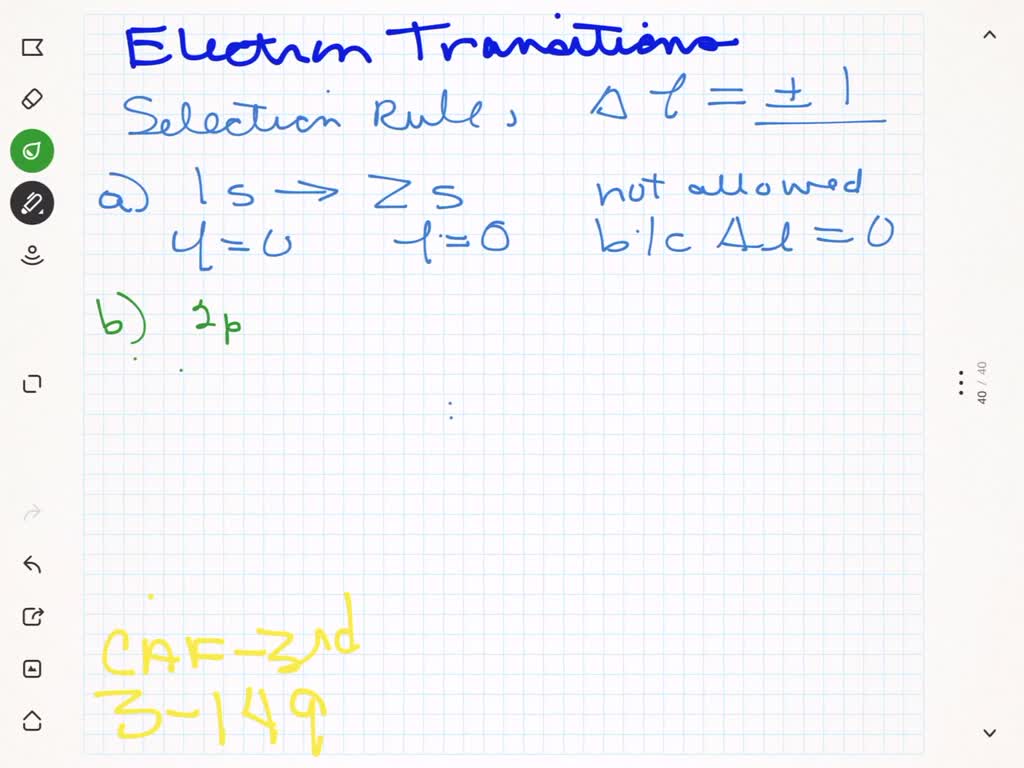 Electron Transitions
Selection Rule, Δ l = ± 1
a) 1s → 2s not allowed
l = 0 l = 0 b/c Δl = 0
b) 2p
40 / 40
CAF-3rd
3-149